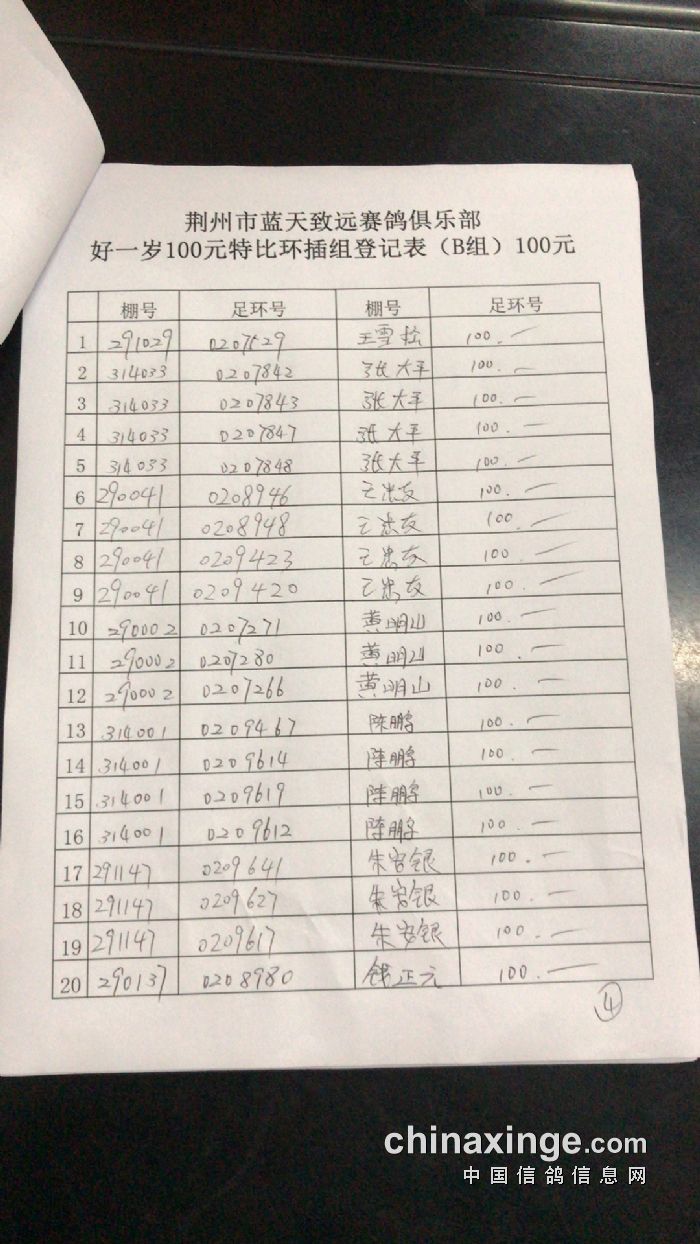 荆州市蓝天致远赛鸽俱乐部
好一岁100元特比环插组登记表（B组）100元
棚号 足环号 棚号 足环号
1 291029 0207529 王雪松 100.—
2 314033 0207842 张大平 100.—
3 314033 0207843 张大平 100.—
4 314033 0207847 张大平 100.—
5 314033 0207848 张大平 100.—
6 290041 0208946 王忠友 100.—
7 290041 0208948 王忠友 100.—
8 290041 0209423 王忠友 100.—
9 290041 0209420 王忠友 100.—
10 290002 0207271 黄明山 100.—
11 290002 0207280 黄明山 100.—
12 290002 0207266 黄明山 100.—
13 314001 0209467 陈鹏 100.—
14 314001 0209614 陈鹏 100.—
15 314001 0209619 陈鹏 100.—
16 314001 0209612 陈鹏 100.—
17 291147 0209641 朱安银 100.—
18 291147 0209627 朱安银 100.—
19 291147 0209617 朱安银 100.—
20 290137 0208980 钱正元 100.—
④
chinaxinge.com
中国信鸽信息网